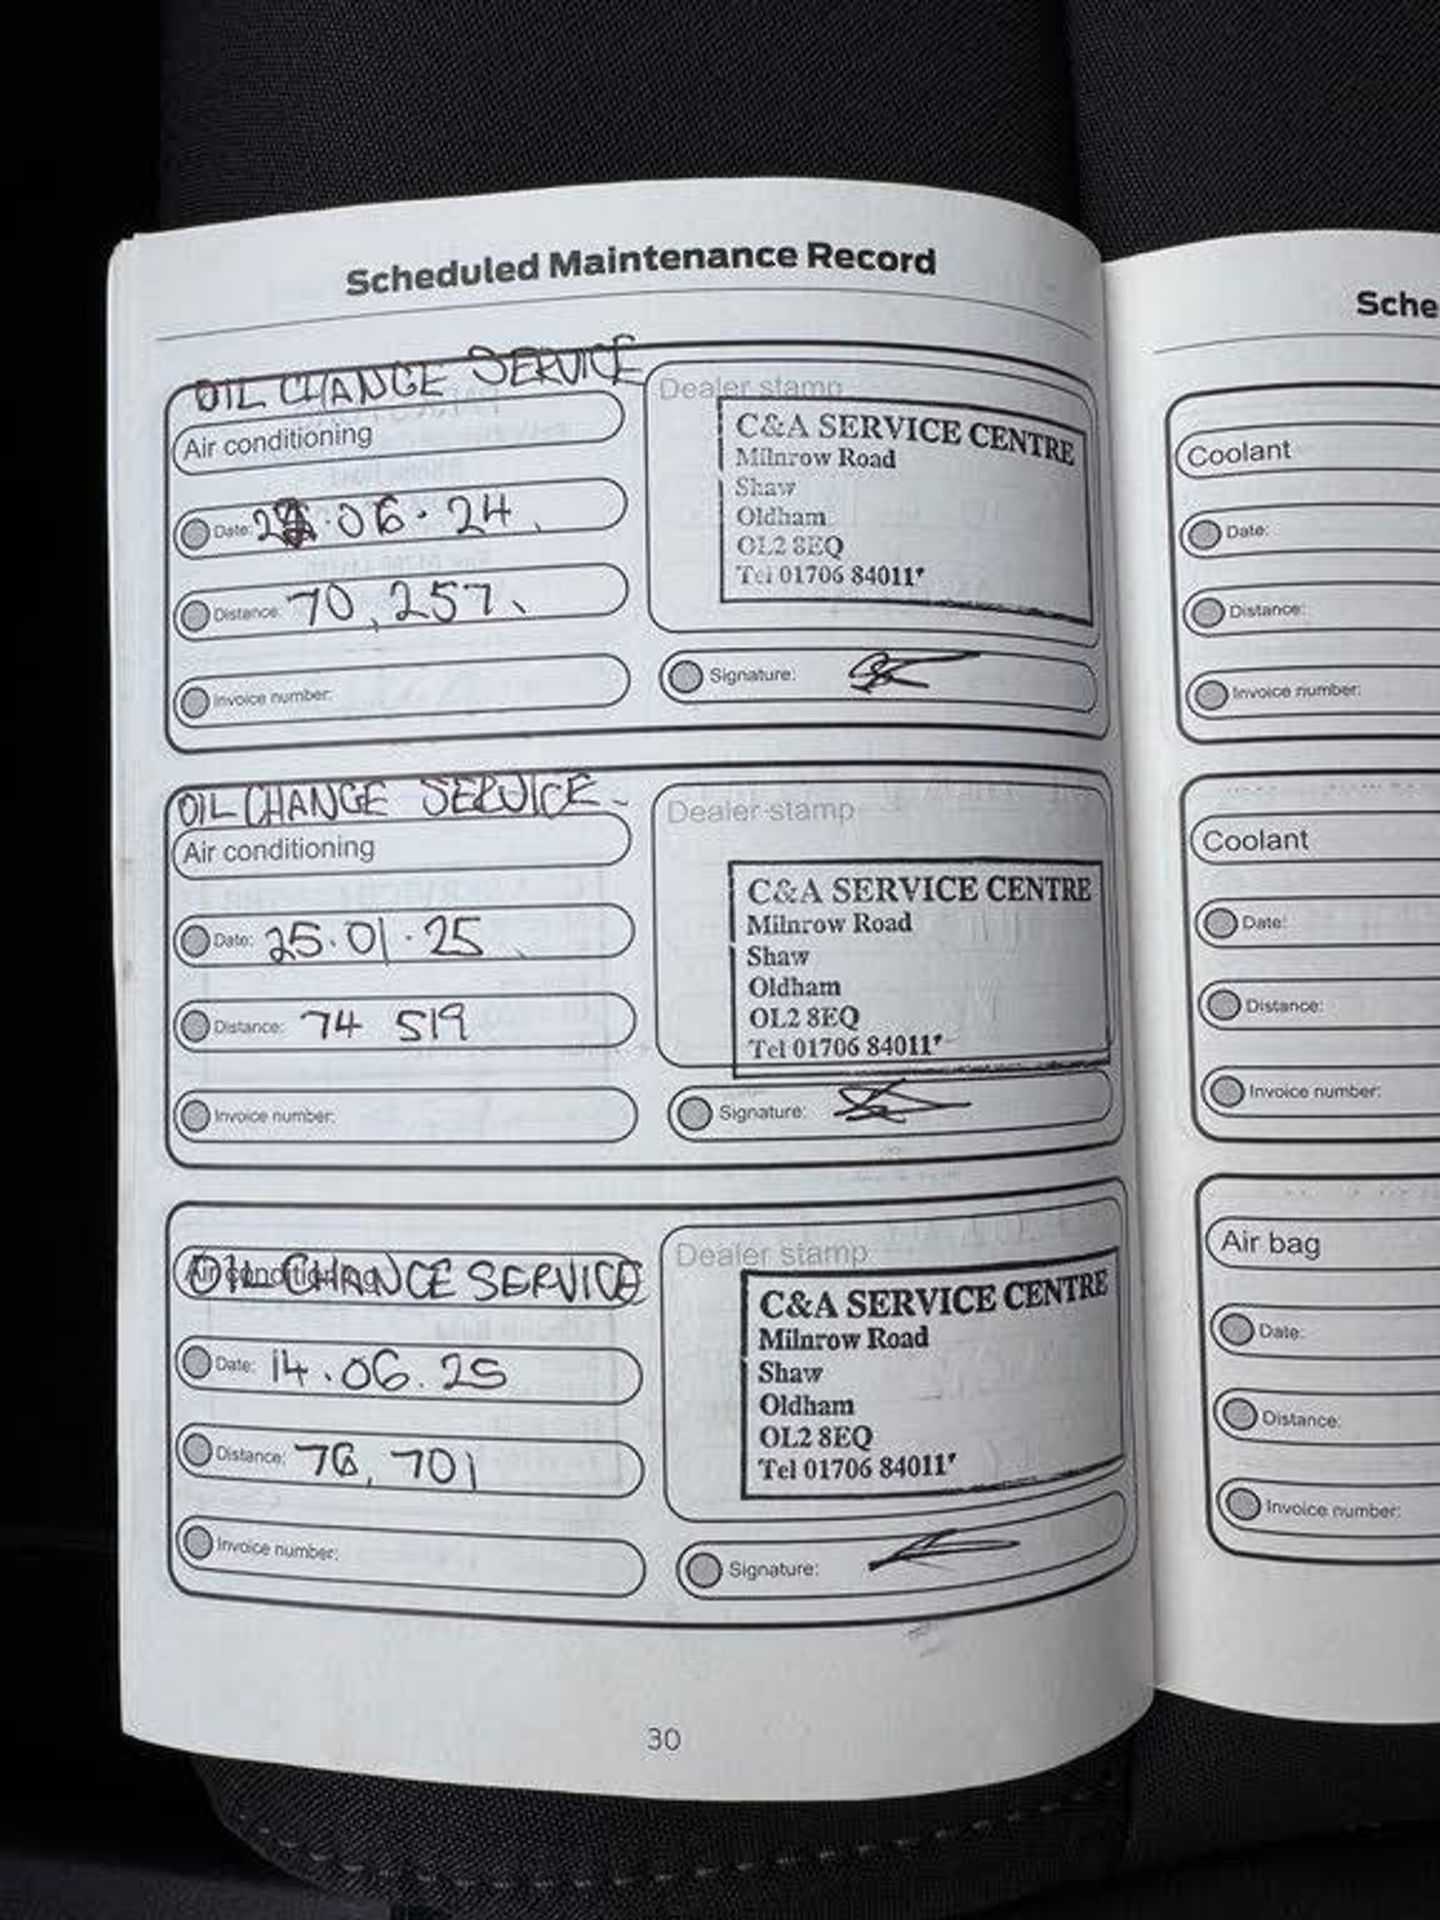 Scheduled Maintenance Record
OIL CHANGE SERVICE
Air conditioning
Date: .06.24
Distance: 70,257
Invoice number:
Dealer stamp
C&A SERVICE CENTRE
Milnrow Road
Shaw
Oldham
OL2 8EQ
Tel 01706 84011
Signature:
OIL CHANGE SERVICE
Air conditioning
Date: 25.01.25
Distance: 74 519
Invoice number:
Dealer stamp
C&A SERVICE CENTRE
Milnrow Road
Shaw
Oldham
OL2 8EQ
Tel 01706 84011
Signature:
OIL CHANGE SERVICE
Air conditioning
Date: 14.06.25
Distance: 76,701
Invoice number:
Dealer stamp
C&A SERVICE CENTRE
Milnrow Road
Shaw
Oldham
OL2 8EQ
Tel 01706 84011
Signature:
30
Sche
Coolant
Date:
Distance:
Invoice number:
Coolant
Date:
Distance:
Invoice number:
Air bag
Date:
Distance:
Invoice number: